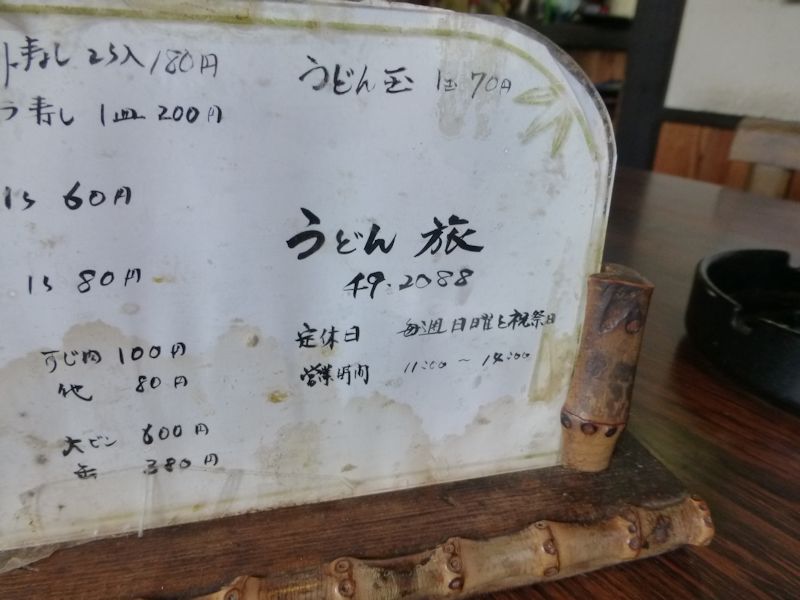 寿し 2コ入 180円
ラ寿し 1皿 200円
1コ 60円
1コ 80円
すじ肉 100円
他 80円
大ビン 600円
缶 380円
うどん玉 1玉 70円
うどん 旅
49-2088
定休日 毎週日曜と祝祭日
営業時間 11:00 〜 14:00